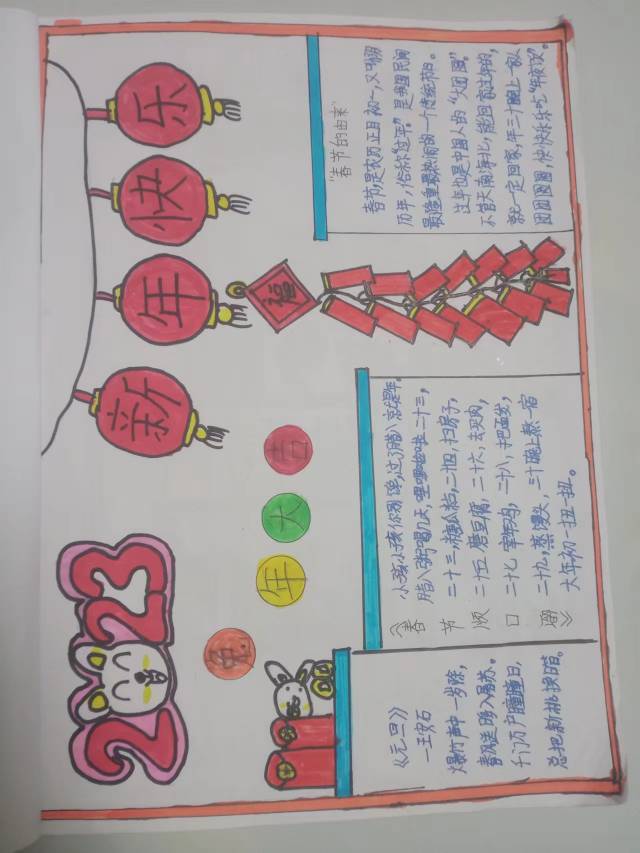 2023
新年快乐
福
兔年大吉
《元旦》
一王安石
爆竹声中一岁除，
春风送暖入屠苏。
千门万户瞳瞳日，
总把新桃换旧
《春节顺口溜》
小孩小孩你别馋，过了腊八就是年。
腊八粥喝几天，哩哩啦啦二十三，
二十三，糖瓜粘，二十四，扫房子，
二十五磨豆腐，二十六，去买肉，
二十七宰年鸡，二十八，把面发，
二十九，蒸馒头，三十晚上熬一宿
大年初一扭一扭。
“春节的由来”
春节，是农历正月初一，又叫阴
历年，俗称“过年”。是我国民间
最隆重最热闹的一个传统节日。
过年也是中国人的“大团圆”。
不管天南海北，能回家过年的，
就一定回家，年三十晚上一家人
团团圆圆，快快乐乐吃“年夜饭”。